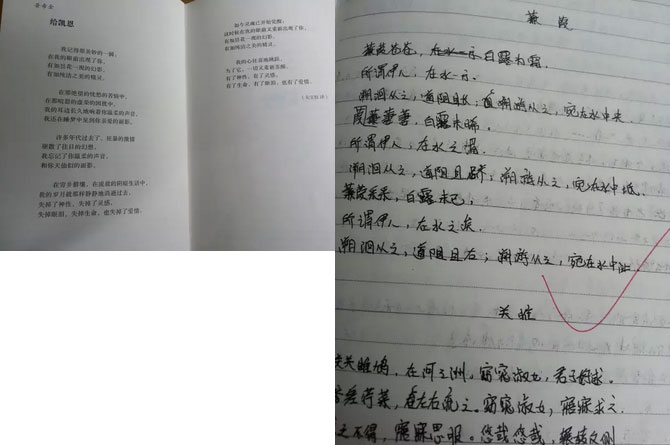 给凯恩
我记得那美妙的一瞬，
在我的眼前出现了你，
有如昙花一现的幻影，
有如纯洁之美的精灵。
在那绝望的忧愁的苦恼中，
在那喧嚣的虚荣的困扰中，
我的耳边长久地响着你温柔的声音，
我还在幽梦中见到你亲爱的面影。
许多年代过去了。狂暴的激情
驱散了往日的幻想，
我忘记了你温柔的声音，
和你天仙似的面影。
在穷乡僻壤，在流放的阴暗生活中，
我的岁月就那样静静地消逝过去，
失掉了神性，失掉了灵感，
失掉眼泪，失掉生命，也失掉了爱情。
如今灵魂已开始觉醒，
这时候在我的眼前又重新出现了你，
有如昙花一现的幻影，
有如纯洁之美的精灵。
我的心狂喜地跳跃，
为了它，一切又重新苏醒，
有了神性，有了灵感，
有了生命，有了眼泪，也有了爱情。
蒹 葭
蒹葭苍苍，白露为霜。
所谓伊人，在水一方。
溯洄从之，道阻且长；溯游从之，宛在水中央
蒹葭萋萋，白露未晞。
所谓伊人，在水之湄。
溯洄从之，道阻且跻；溯游从之，宛在水中坻。
蒹葭采采，白露未已，
所谓伊人，在水之涘。
溯洄从之，道阻且右；溯游从之，宛在水中沚。
关雎
关雎鸠，在河之洲。窈窕淑女，君子好逑。
荇菜，左右流之。窈窕淑女，寤寐求之。
之不得，寤寐思服。悠哉悠哉，辗转反侧